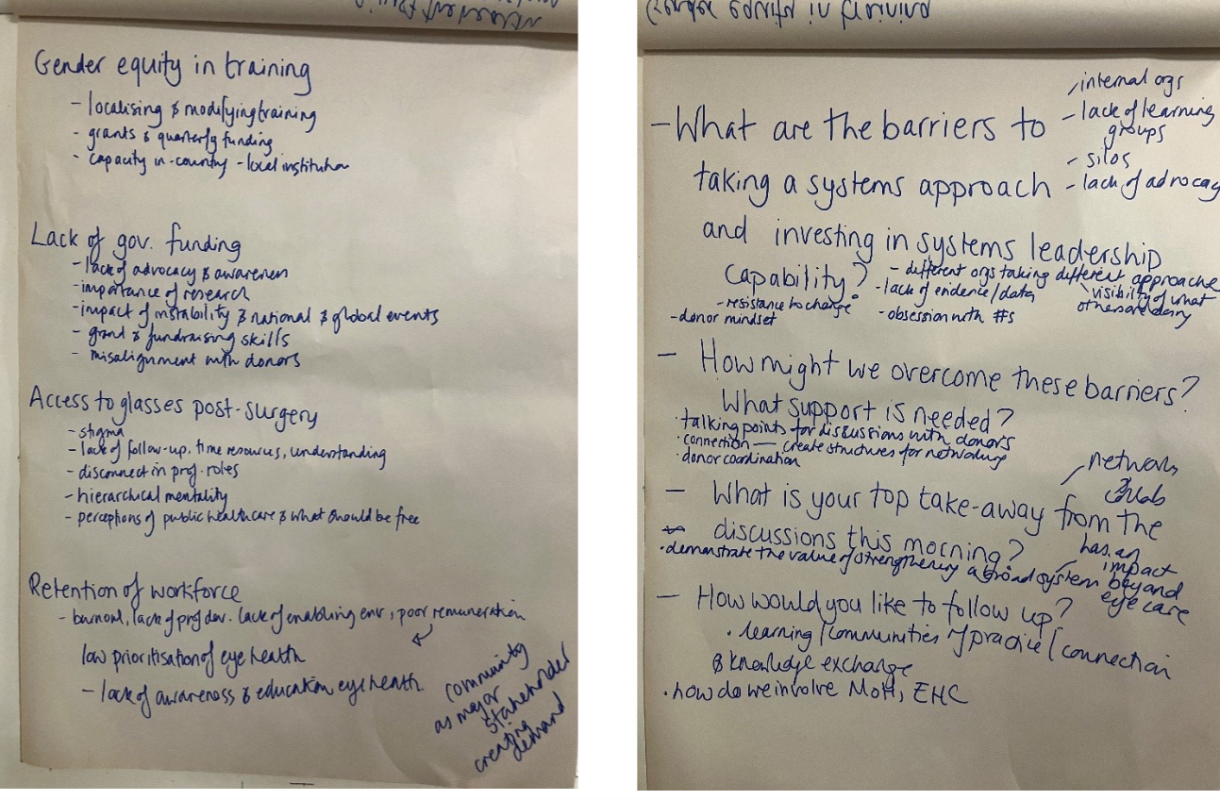 Gender equity in training
- localising & modifying training
- grants & quarterly funding
- capacity in-country - local institution
Lack of gov. funding
- lack of advocacy & awareness
- importance of research
- impact of instability & national & global events
- grant & fundraising skills
- misalignment with donors
Access to glasses post-surgery
- stigma
- lack of follow-up, time resources, understanding
- disconnect in prof. roles
- hierarchical mentality
- perceptions of public healthcare & what should be free
Retention of workforce
- burnout, lack of prof dev. lack of enabling env, poor remuneration
low prioritisation of eye health
- lack of awareness & education eye health
community
as major
stakeholder
creating
demand
- What are the barriers to
taking a systems approach
and investing in systems leadership
capability?
- internal orgs
- lack of learning
groups
- silos
- lack of advocacy
- different orgs taking different approaches
visibility of what
others are doing
- lack of evidence/data
- obsession with #s
- resistance to change
- donor mindset
- How might we overcome these barriers?
What support is needed?
· talking points for discussions with donors
· connection — create structures for networking
· donor coordination
- What is your top take-away from the
discussions this morning?
networks
& collab
· demonstrate the value of strengthening a broad system
has an
impact
beyond
eye care
- How would you like to follow up?
· learning/communities of practice/connection
& knowledge exchange
· how do we involve MoH, EHC